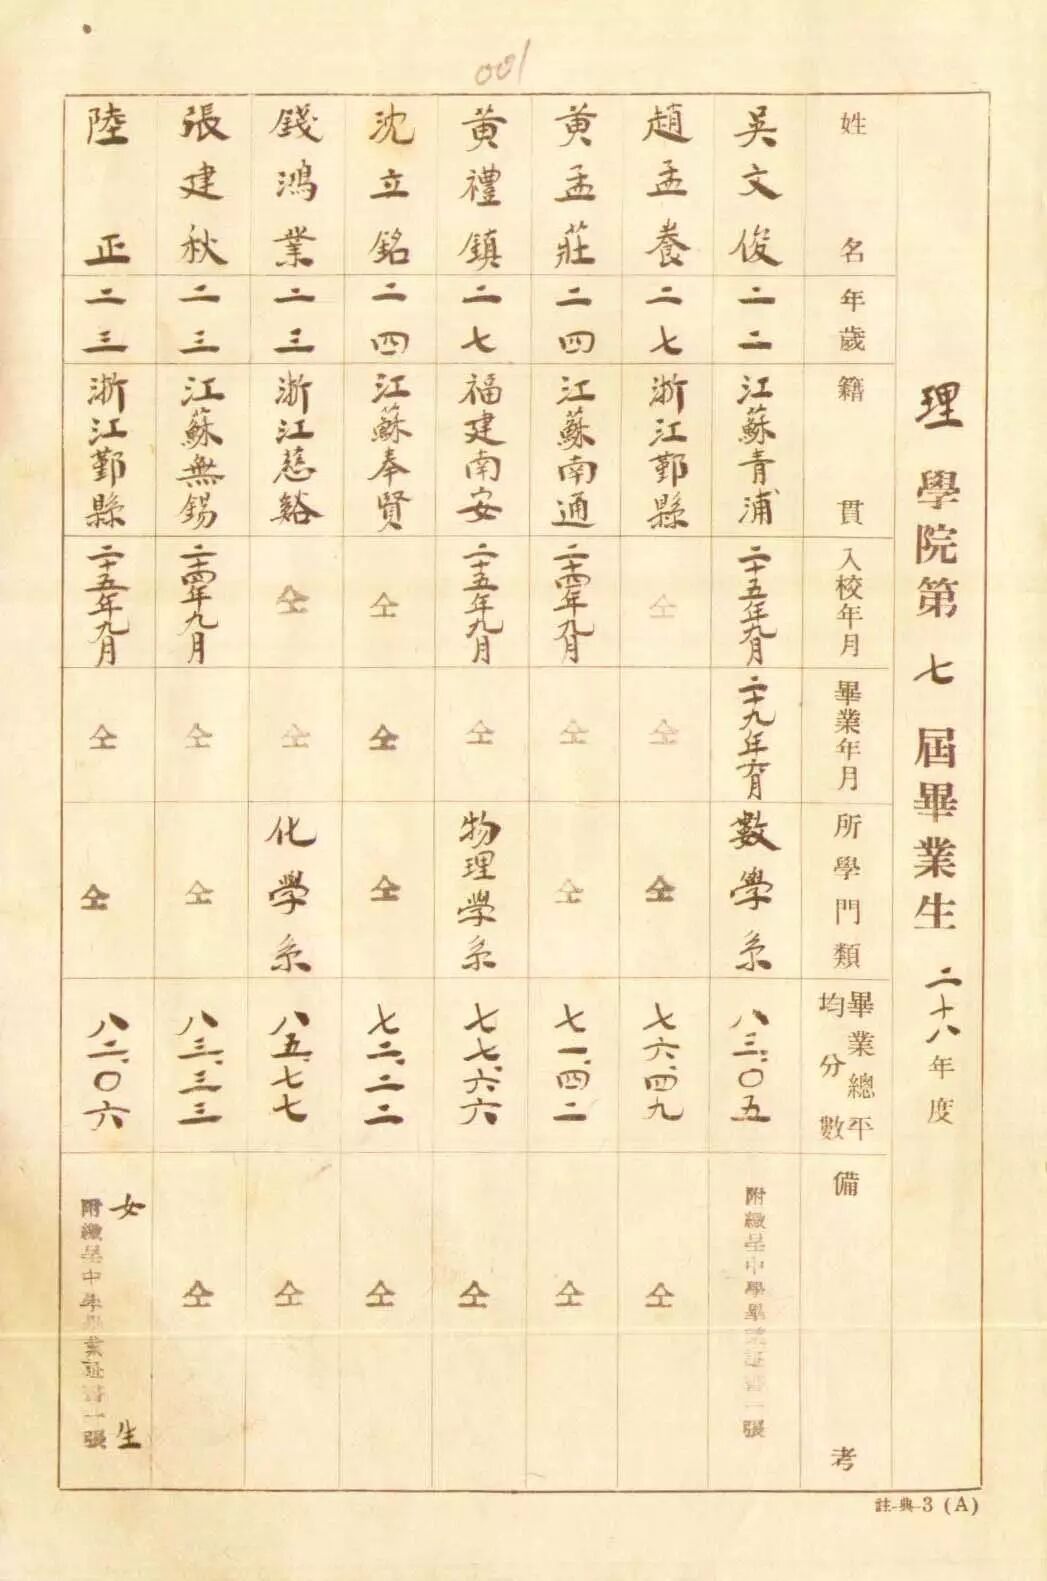 001
理學院第七屆畢業生 二十八年度
姓名 年歲 籍貫 入校年月 畢業年月 所學門類 畢業總平均分數 備考
吳文俊 二二 江蘇青浦 二十五年九月 二十九年六月 數學系 八三.〇五 附繳呈中學畢業証書一張
趙孟養 二七 浙江鄞縣 仝 仝 仝 七六.四九 仝
黄孟莊 二四 江蘇南通 二十四年九月 仝 仝 七一.四二 仝
黄禮鎮 二七 福建南安 二十五年九月 仝 物理學系 七七.六六 仝
沈立銘 二四 江蘇奉賢 仝 仝 仝 七二.二二 仝
錢鴻業 二三 浙江慈谿 仝 仝 化學系 八五.七七 仝
張建秋 二三 江蘇無錫 二十四年九月 仝 仝 八三.三三 仝
陸正 二三 浙江鄞縣 二十五年九月 仝 仝 八二.〇六 女生 附繳呈中學畢業証書一張
註-典-3 (A)